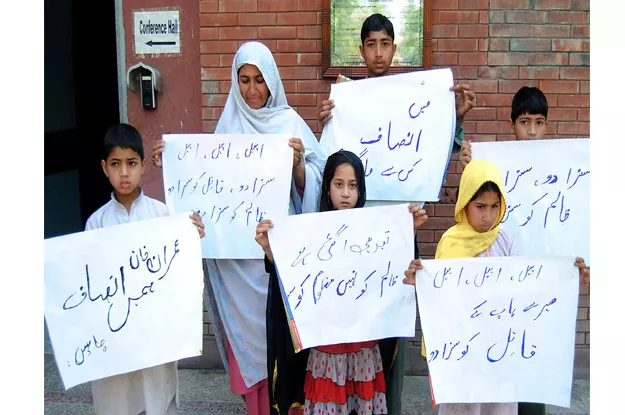 Conference Hall
اپیل، اپیل، اپیل
سزا دو، قاتل کو سزا دو
ظالم کو سزا دو
میں
انصاف
کس سے
سزا دو، سزا
ظالم کو سز
عمران خان
ہمیں انصاف
چاہیے
تبدیلی آ گئی ہے
ظالم کو نہیں مظلوم کو سز
اپیل، اپیل، اپیل
میرے باپ کے
قاتل کو سزا دو